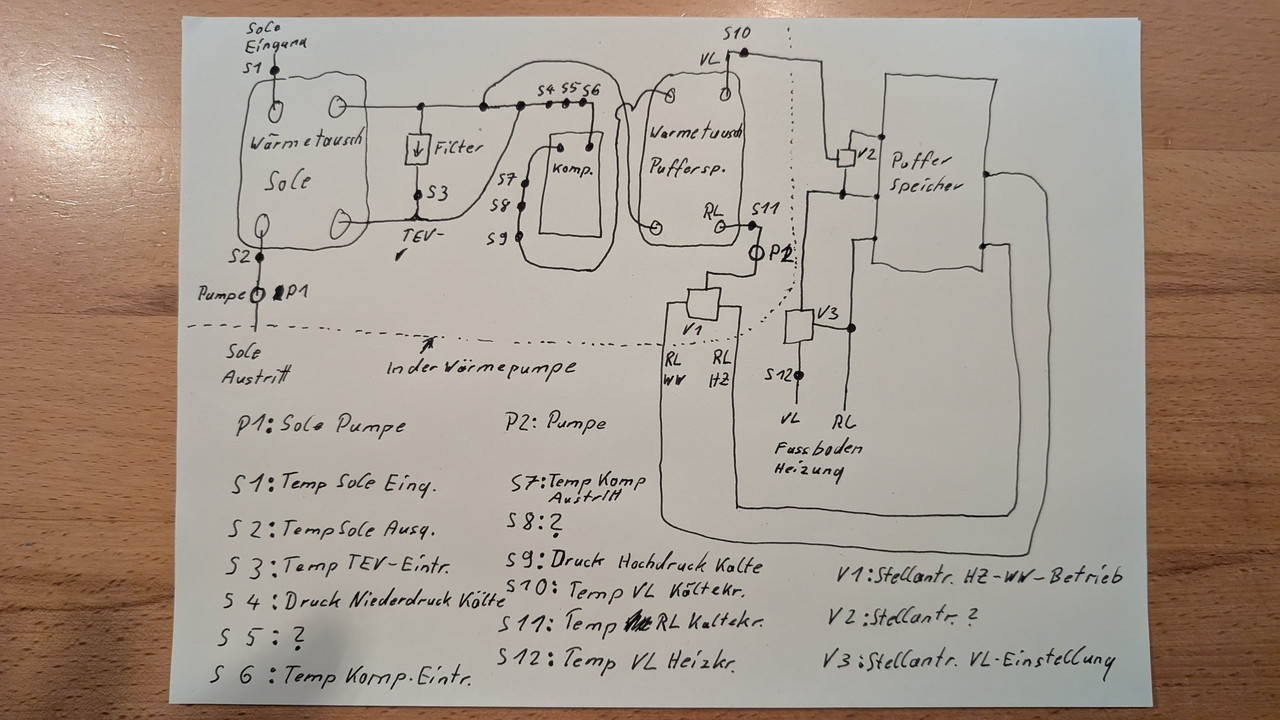 Sole
Eingang
S1
S10
VL
S4 S5 S6
Wärmetausch
Sole
Filter
Komp.
Warmetausch
Puffersp.
V2
Puffer
Speicher
S3
S7
S8
S9
RL
S11
TEV-
S2
P2
Pumpe P1
V1
V3
Sole
Austritt
In der Wärmepumpe
RL
WW
RL
HZ
S12
VL
RL
Fussboden
Heizung
P1: Sole Pumpe
P2: Pumpe
S1: Temp Sole Eing.
S2: Temp Sole Ausg.
S3: Temp TEV-Eintr.
S4: Druck Niederdruck Kälte
S5: ?
S6: Temp Komp.Eintr.
S7: Temp Komp
Austritt
S8: ?
S9: Druck Hochdruck Kalte
S10: Temp VL Kältekr.
S11: Temp RL Kaltekr.
S12: Temp VL Heizkr.
V1: Stellantr. HZ-WW-Betrieb
V2: Stellantr. ?
V3: Stellantr. VL-Einstellung